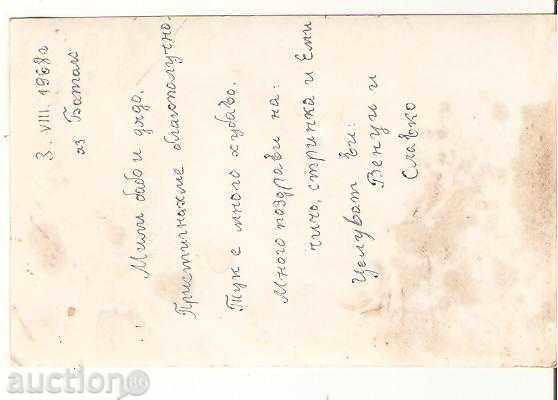 3. VIII. 1968г
яз Батак
Мили бабо и дядо.
Пристигнахме благополучно.
Тук е много хубаво.
Много поздрави на:
чичо, стринка и Еми
Целуват ви:
Венци и
Славко
auction.BG